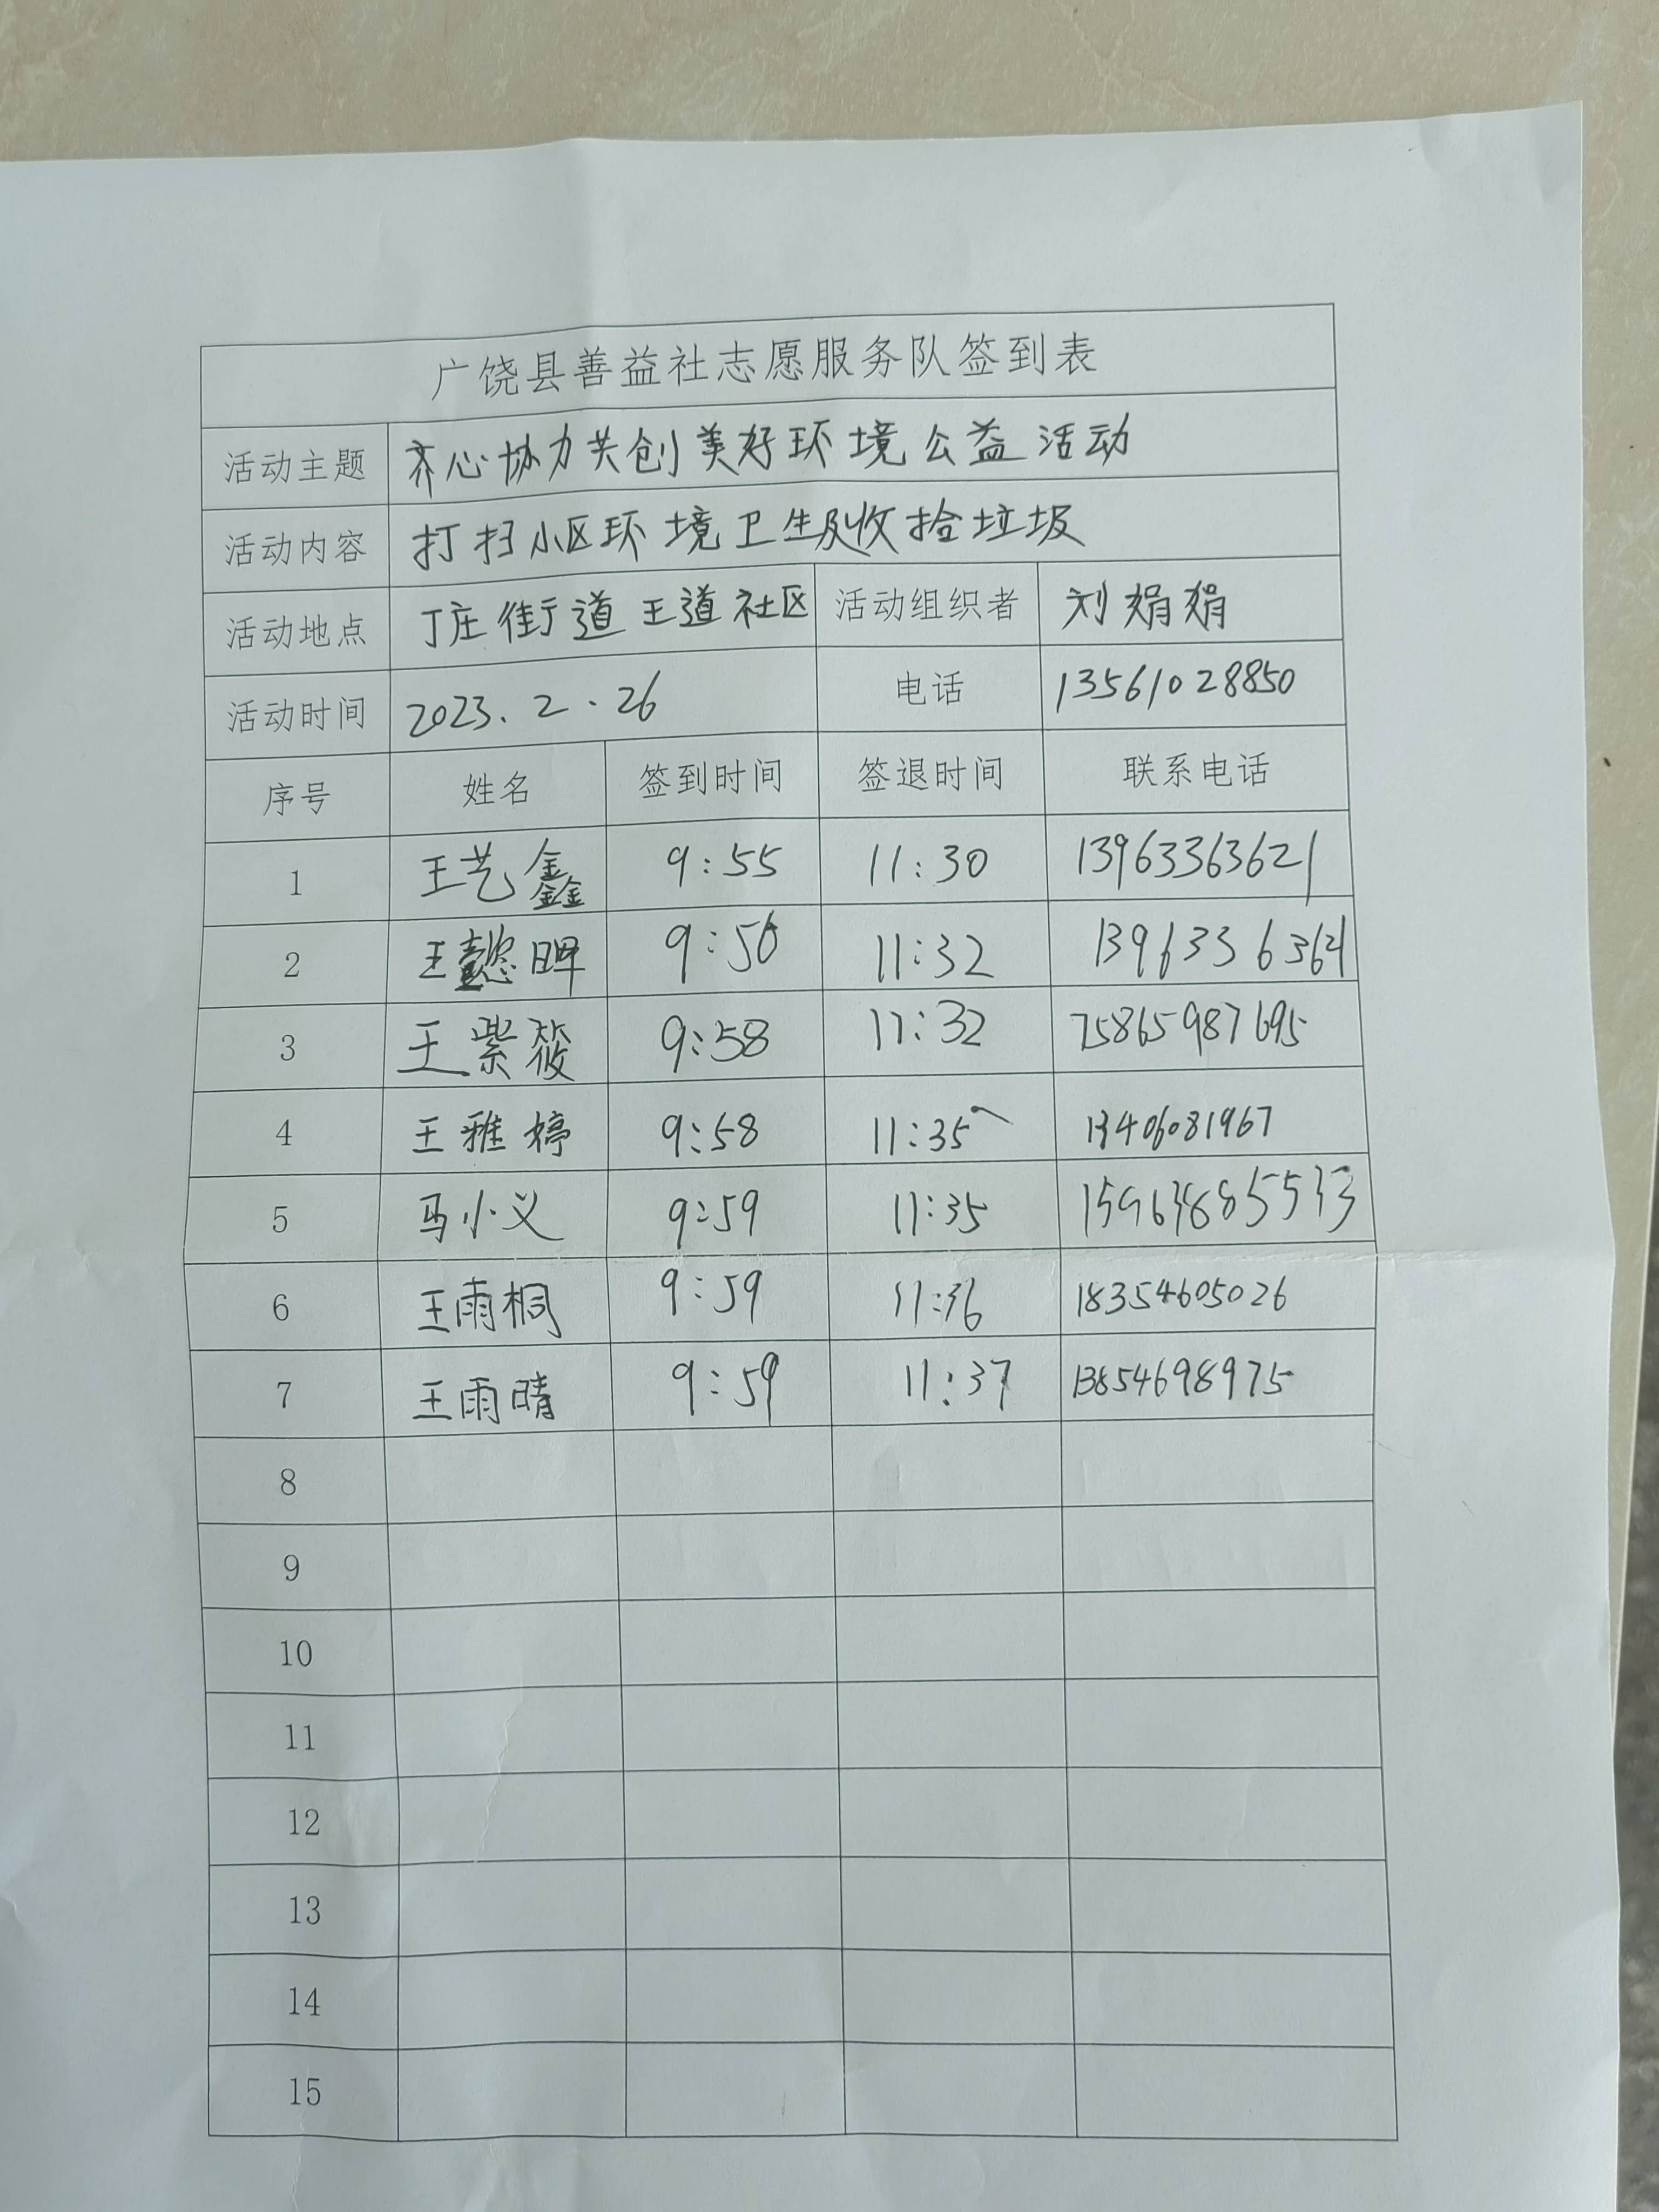 广饶县善益社志愿服务队签到表
活动主题 齐心协力共创美好环境公益活动
活动内容 打扫小区环境卫生及收拾垃圾
活动地点 丁庄街道王道社区 活动组织者 刘娟娟
活动时间 2023.2.26 电话 13561028850
序号 姓名 签到时间 签退时间 联系电话
1 王艺鑫 9:55 11:30 13963363621
2 王懿 9:56 11:32
3 王紫筱 9:58 11:32 15865987695
4 王雅婷 9:58 11:35 13406081967
5 马小义 9:59 11:35
6 王雨桐 9:59 11:36 18354605026
7 王雨晴 9:59 11:37 13854698975
8
9
10
11
12
13
14
15